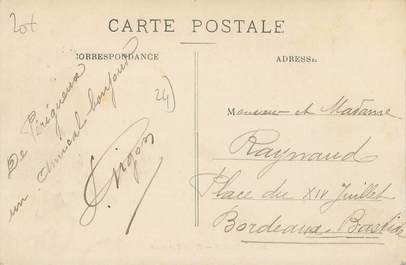 20t
CARTE POSTALE
CORRESPONDANCE
ADRESSE
24)
De Périgueux
un amical bonjour
Monsieur et Madame
Raynaud
Place du XIV Juillet
Bordeaux Bastide